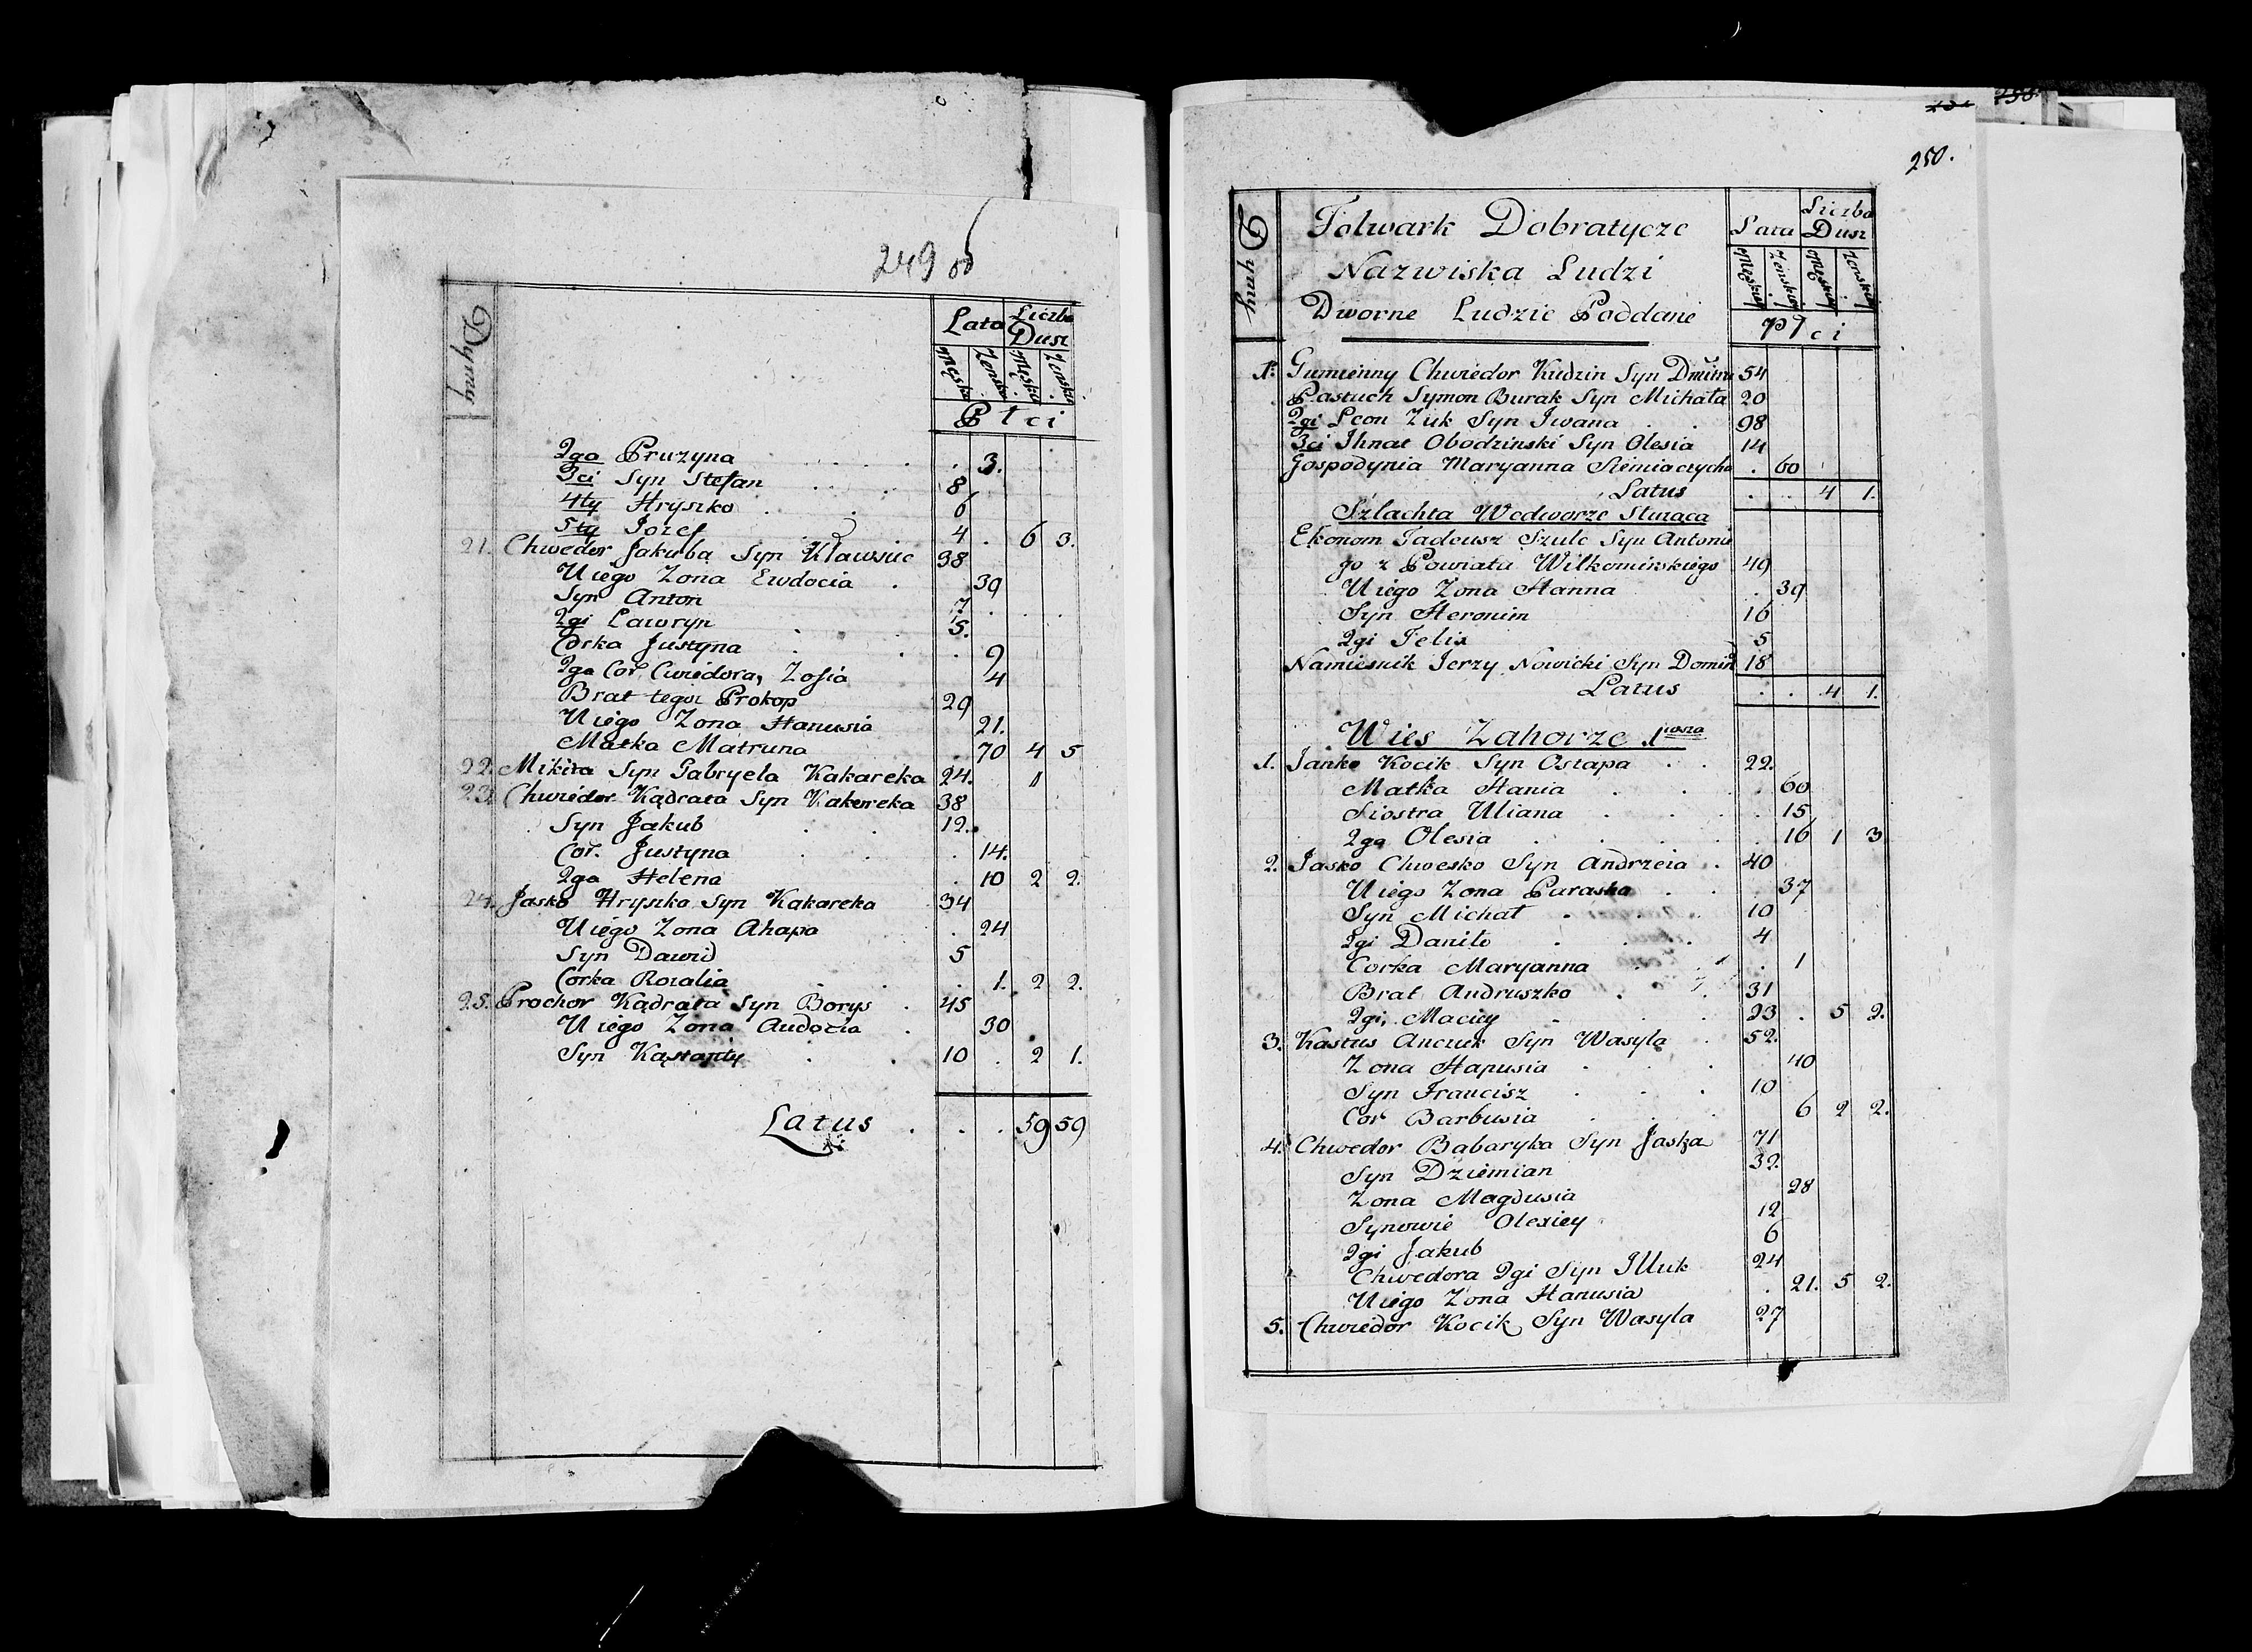 249 об
Dymy
Lata Liczba Dusz
Męska Żenska Męska Żenska
Płci
2ga Pruzyna . 3.
3ci Syn Stefan 8
4ty Hryszko 6
5ty Jozef 4 . 6 3.
21. Chwedor Jakuba Syn Kławsiuc 38
U iego Zona Ewdocia . 39
Syn Anton 7 .
2gi Lawryn 5.
Corka Justyna . 9
2ga Cor Cwiedora, Zofia 4
Brat tegoz Prokop 29
U iego Zona Hanusia 21.
Matka Matruna . 70 4 5
22. Mikita Syn Gabryela Kakareka 24. 1
23. Chwiedor Kądrata Syn Kakareka 38
Syn Jakub 12.
Cor. Justyna . 14.
2ga Helena . 10 2 2.
24. Jasko Hryszko Syn Kakareka 34
U iego Zona Ahapa . 24
Syn Dawid 5
Corka Rozalia . 1. 2 2.
25. Prochor Kądrata Syn Borys 45
U iego Zona Audocia . 30
Syn Kąstanty 10 . 2 1.
Latus . . . 59 59
250.
Dymy
Folwark Dobratycze
Nazwiska Ludzi
Dworne Ludzie Poddane
Lata Liczba Dusz
Męskiey Żenskiey Męskiey Żenskiey
Płci
1. Gumienny Chwiedor Kudzin Syn Dmitra 54
Pastuch Symon Burak Syn Michała 20
2gi Leon Zuk Syn Iwana . . 98
3ci Ihnat Obodzinski Syn Olesia 14
Gospodynia Maryanna Siemiaczycha . 60
Latus . . 4 1.
Szlachta Wedworze Słuząca
Ekonom Tadeusz Szulc Syn Antonie
go z Powiatu Wiłkomirskiego 49
U iego Zona Hanna . 39
Syn Heronim 16
2gi Felix 5
Namiesnik Jerzy Nowicki Syn Domin 18
Latus . . 4 1.
Wies Zahorze 1wsza
1. Janko Kocik Syn Ostapa . . 22.
Matka Hania . . . 60
Siostra Uliana . . . 15
2ga Olesia . . . 16 1 3
2. Jasko Chwesko Syn Andrzeia . 40
U iego Zona Paraska . . 37
Syn Michał . . . 10
2gi Daniło . . . 4
Corka Maryanna . . . 1
Brat Andruszko . . 31
2gi, Maciey . . 23 . 5 2.
3. Kastus Anczuk Syn Wasyla . 52.
Zona Hapusia . . . 40
Syn Francisz . . . 10
Cor Barbusia . . . 6 2 2.
4. Chwedor Babaryka Syn Jaska 71
Syn Dziemian 32.
Zona Magdusia 28
Synowie Olexiey 12
2gi Jakub 6
Chwedora 2gi Syn Illuk 24
U iego Zona Hanusia . 21. 5 2.
5. Chwiedor Kocik Syn Wasyla 27